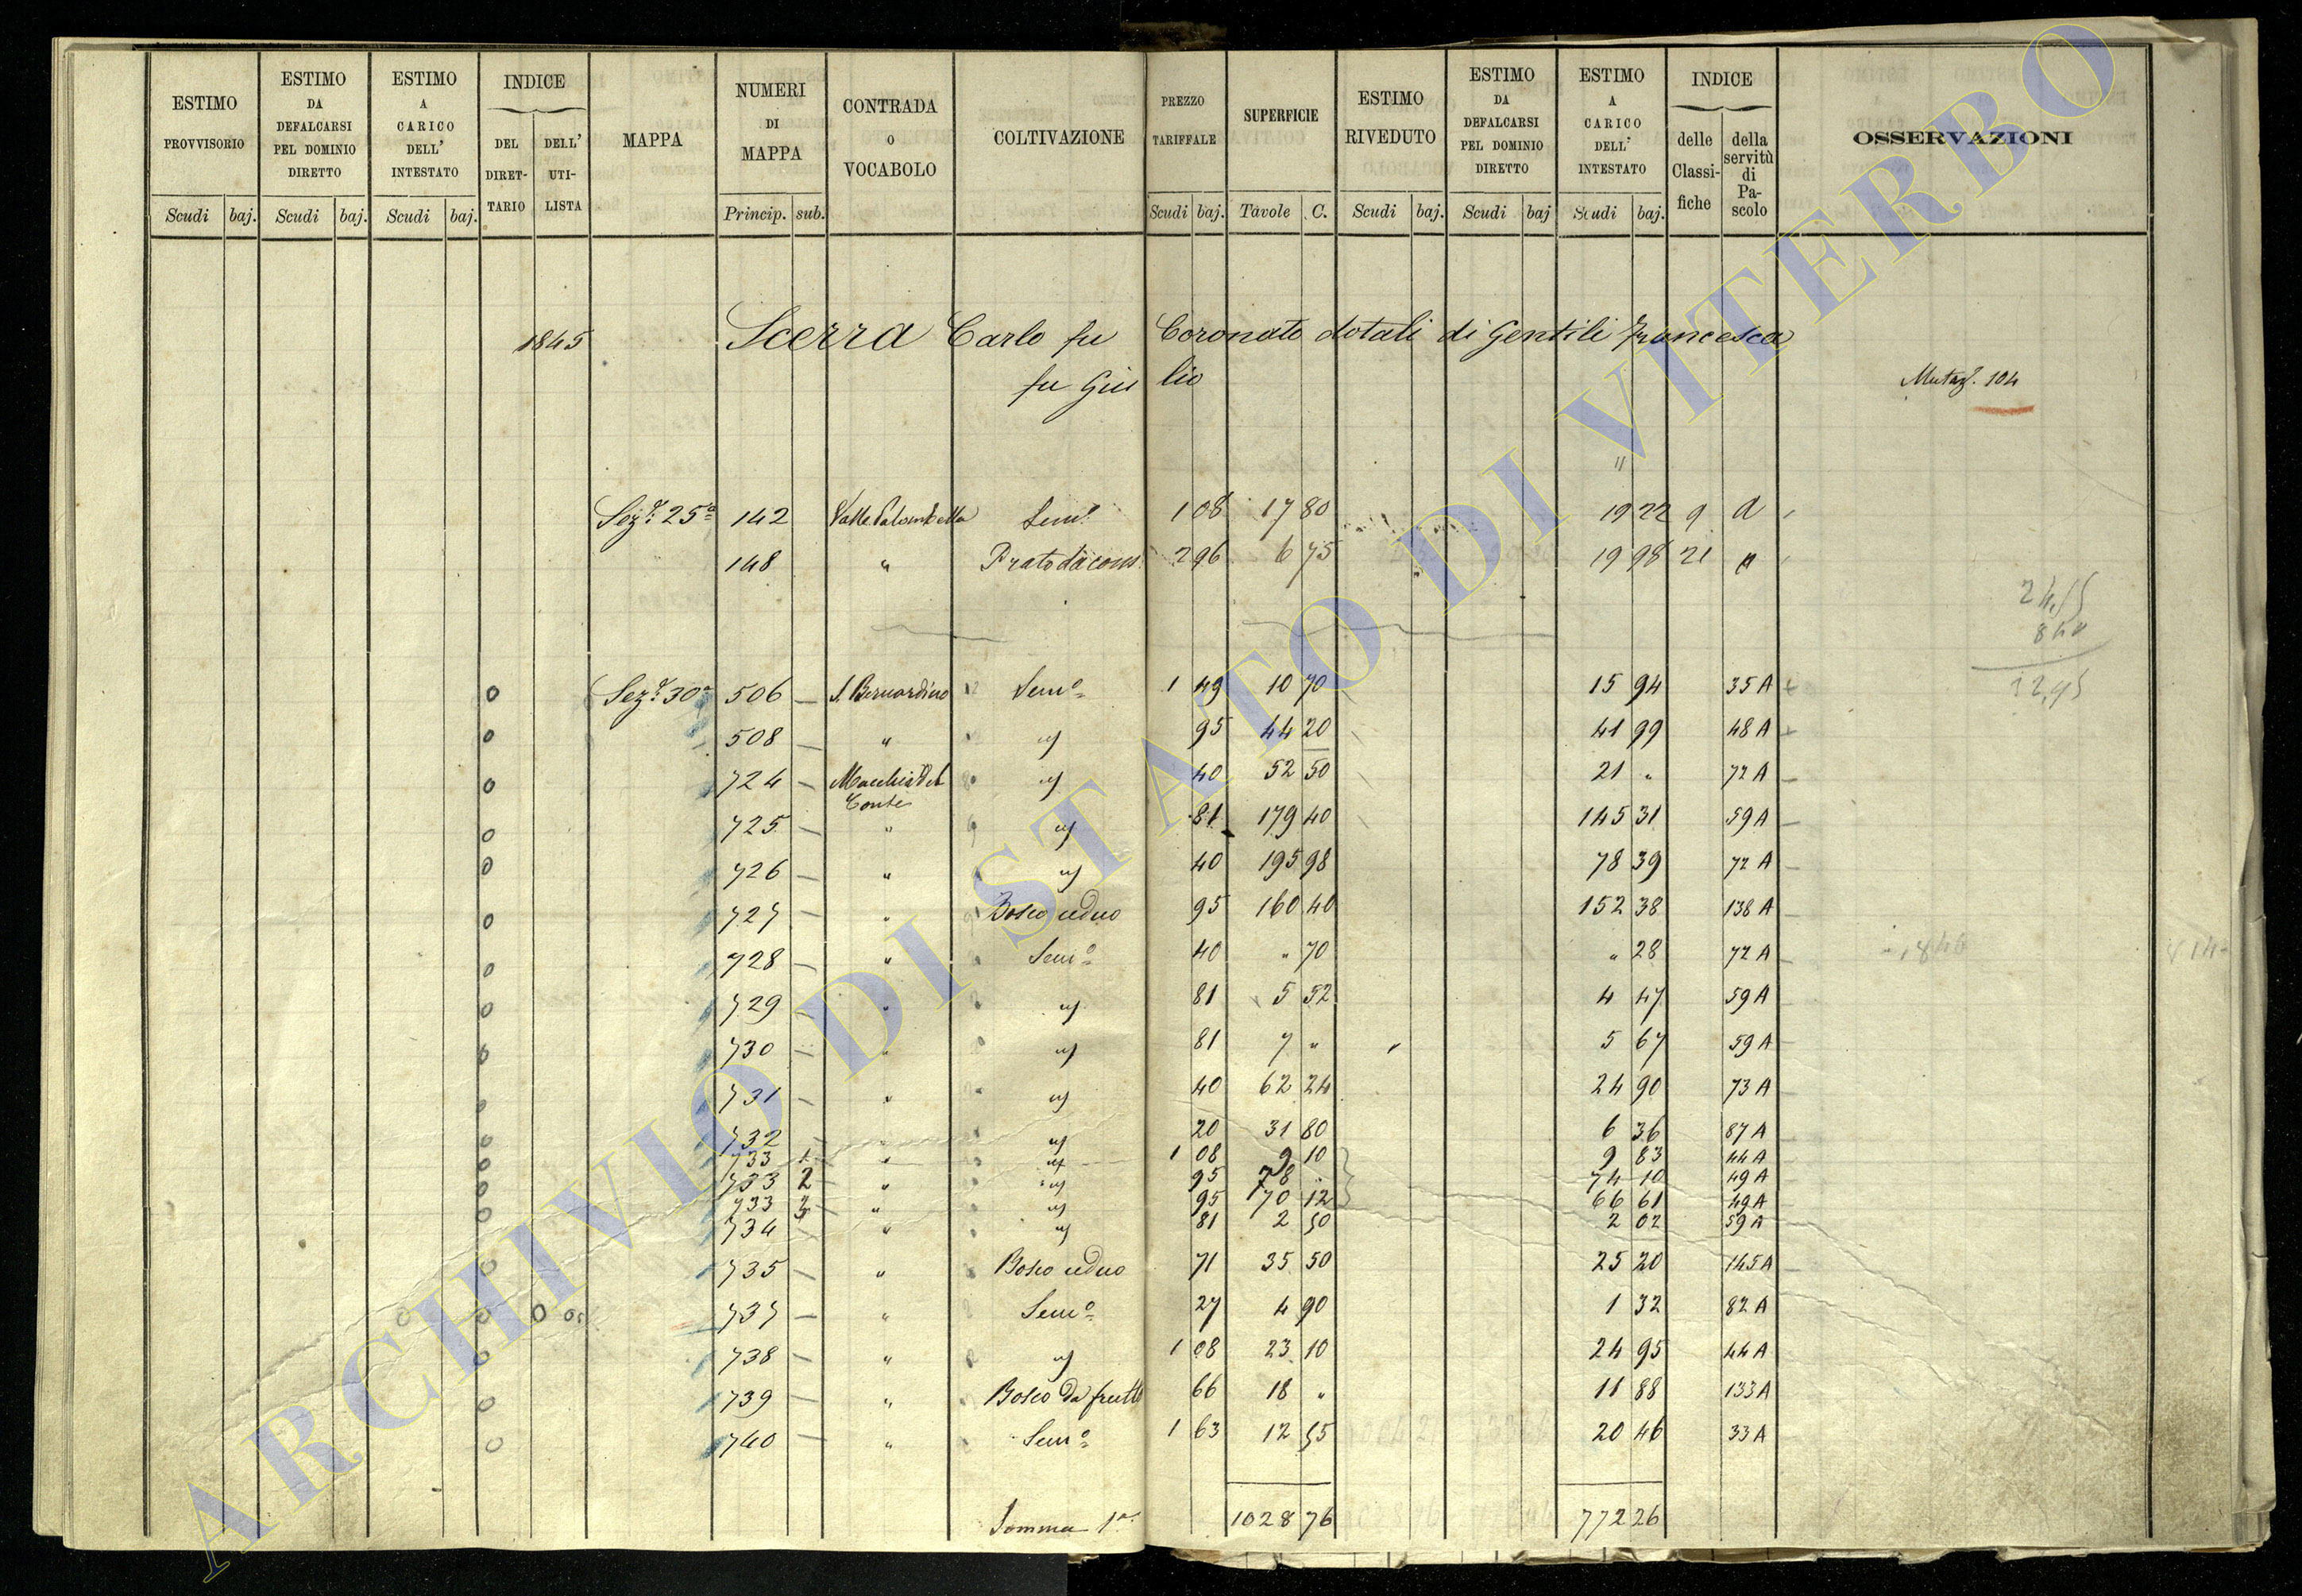 ESTIMO PROVVISORIO | ESTIMO DA DEFALCARSI PEL DOMINIO DIRETTO | ESTIMO A CARICO DELL' INTESTATO | INDICE DEL DIRET-TARIO | DELL' UTI-LISTA | MAPPA | NUMERI DI MAPPA | CONTRADA O VOCABOLO | COLTIVAZIONE | PREZZO TARIFFALE | SUPERFICIE | ESTIMO RIVEDUTO | ESTIMO DA DEFALCARSI PEL DOMINIO DIRETTO | ESTIMO A CARICO DELL' INTESTATO | INDICE delle Classi-fiche | della servitù di Pa-scolo | OSSERVAZIONI
Scudi baj. Scudi baj. Scudi baj. Princip. sub. Scudi baj. Tavole C. Scudi baj. Scudi baj Scudi baj.
1845 Scerra Carlo fu Coronato dotali di Gentili Francesca
fu Giulio
Mutaz. 104
"
Sez.e 25a 142 Valle Palombella Sem.o 1 08 17 80 19 22 9 A
148 " Prato da 2 96 6 75 19 98 21 "
0 Sez.e 30a 506 — S. Bernardino Sem.o 1 49 10 70 15 94 35 A
0 508 — " " 95 44 20 41 99 48 A
0 724 — Macchia del Conte " 40 52 50 21 " 72 A
0 725 — " " 81 179 40 145 31 59 A
0 726 — " " 40 195 98 78 39 72 A
0 727 — " Bosco ceduo 95 160 40 152 38 138 A
0 728 — " Sem.o 40 " 70 " 28 72 A
1846
0 729 — " " 81 5 52 4 47 59 A
0 730 — " " 81 7 " 5 67 59 A
0 731 — " " 40 62 24 24 90 73 A
0 732 — " " 20 31 80 6 36 87 A
0 733 1 " " 1 08 9 10 9 83 44 A
0 733 2 " " 95 78 " 74 10 49 A
0 733 3 " " 95 70 12 66 61 49 A
0 734 — " " 81 2 50 2 02 59 A
0 735 — " Bosco ceduo 71 35 50 25 20 145 A
0 0 0 737 — " Sem.o 27 4 90 1 32 82 A
0 738 — " " 1 08 23 10 24 95 44 A
0 739 — " Bosco da frutto 66 18 " 11 88 133 A
0 740 — " Sem.o 1 63 12 55 20 46 33 A
Somma 1a 1028 76 772 26
ARCHIVIO DI STATO DI VITERBO